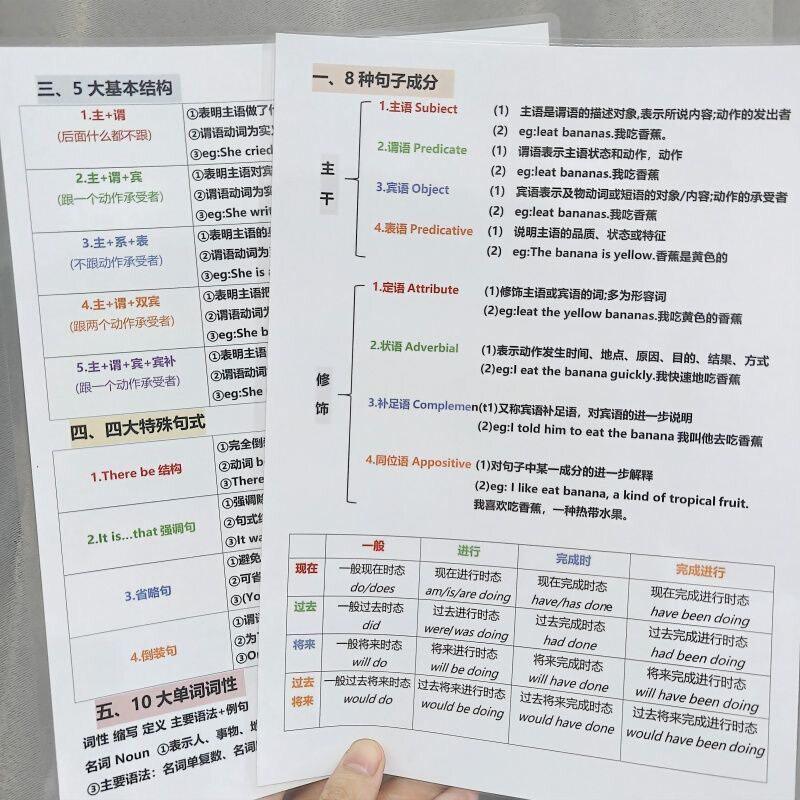 三、5 大基本结构
1.主+谓
(后面什么都不跟)
①表明主语做了
②谓语动词为实
③eg:She cried
2.主+谓+宾
(跟一个动作承受者)
①表明主语对宾
②谓语动词为实
③eg:She writ
3.主+系+表
(不跟动作承受者)
①表明主语的
②谓语动词为
③eg:She is
4.主+谓+双宾
(跟两个动作承受者)
①表明主语把
②谓语动词为
③eg:She b
5.主+谓+宾+宾补
(跟一个动作承受者)
①表明主语
②谓语动词
③eg:She
四、四大特殊句式
1.There be 结构
①完全倒
②动词 b
③There
2.It is...that 强调句
①强调
②句式
③It wa
3.省略句
①避免
②可省
③(Yo
4.倒装句
①谓语
②为了
③O
五、10 大单词词性
词性 缩写 定义 主要语法+例句
名词 Noun ①表示人、事物、地
③主要语法：名词单复数、名词
一、8 种句子成分
主干
1.主语 Subiect
(1) 主语是谓语的描述对象,表示所说内容;动作的发出者
(2) eg:leat bananas.我吃香蕉。
2.谓语 Predicate
(1) 谓语表示主语状态和动作，动作
(2) eg:leat bananas.我吃香蕉
3.宾语 Object
(1) 宾语表示及物动词或短语的对象/内容;动作的承受者
(2) eg:leat bananas.我吃香蕉。
4.表语 Predicative
(1) 说明主语的品质、状态或特征
(2) eg:The banana is yellow.香蕉是黄色的
修饰
1.定语 Attribute
(1)修饰主语或宾语的词;多为形容词
(2)eg:leat the yellow bananas.我吃黄色的香蕉
2.状语 Adverbial
(1)表示动作发生时间、地点、原因、目的、结果、方式
(2)eg:I eat the banana guickly.我快速地吃香蕉
3.补足语 Complemen(t1)又称宾语补足语，对宾语的进一步说明
(2)eg:I told him to eat the banana 我叫他去吃香蕉
4.同位语 Appositive (1)对句子中某一成分的进一步解释
(2)eg: I like eat banana, a kind of tropical fruit.
我喜欢吃香蕉，一种热带水果。
一般 进行 完成时 完成进行
现在 一般现在时态 现在进行时态 现在完成时态 现在完成进行时态
do/does am/is/are doing have/has done have been doing
过去 一般过去时态 过去进行时态 过去完成时态 过去完成进行时态
did were/was doing had done had been doing
将来 一般将来时态 将来进行时态 将来完成时态 将来完成进行时态
will do will be doing will have done will have been doing
过去将来 一般过去将来时态 过去将来进行时态 过去将来完成时态 过去将来完成进行时态
would do would be doing would have done would have been doing